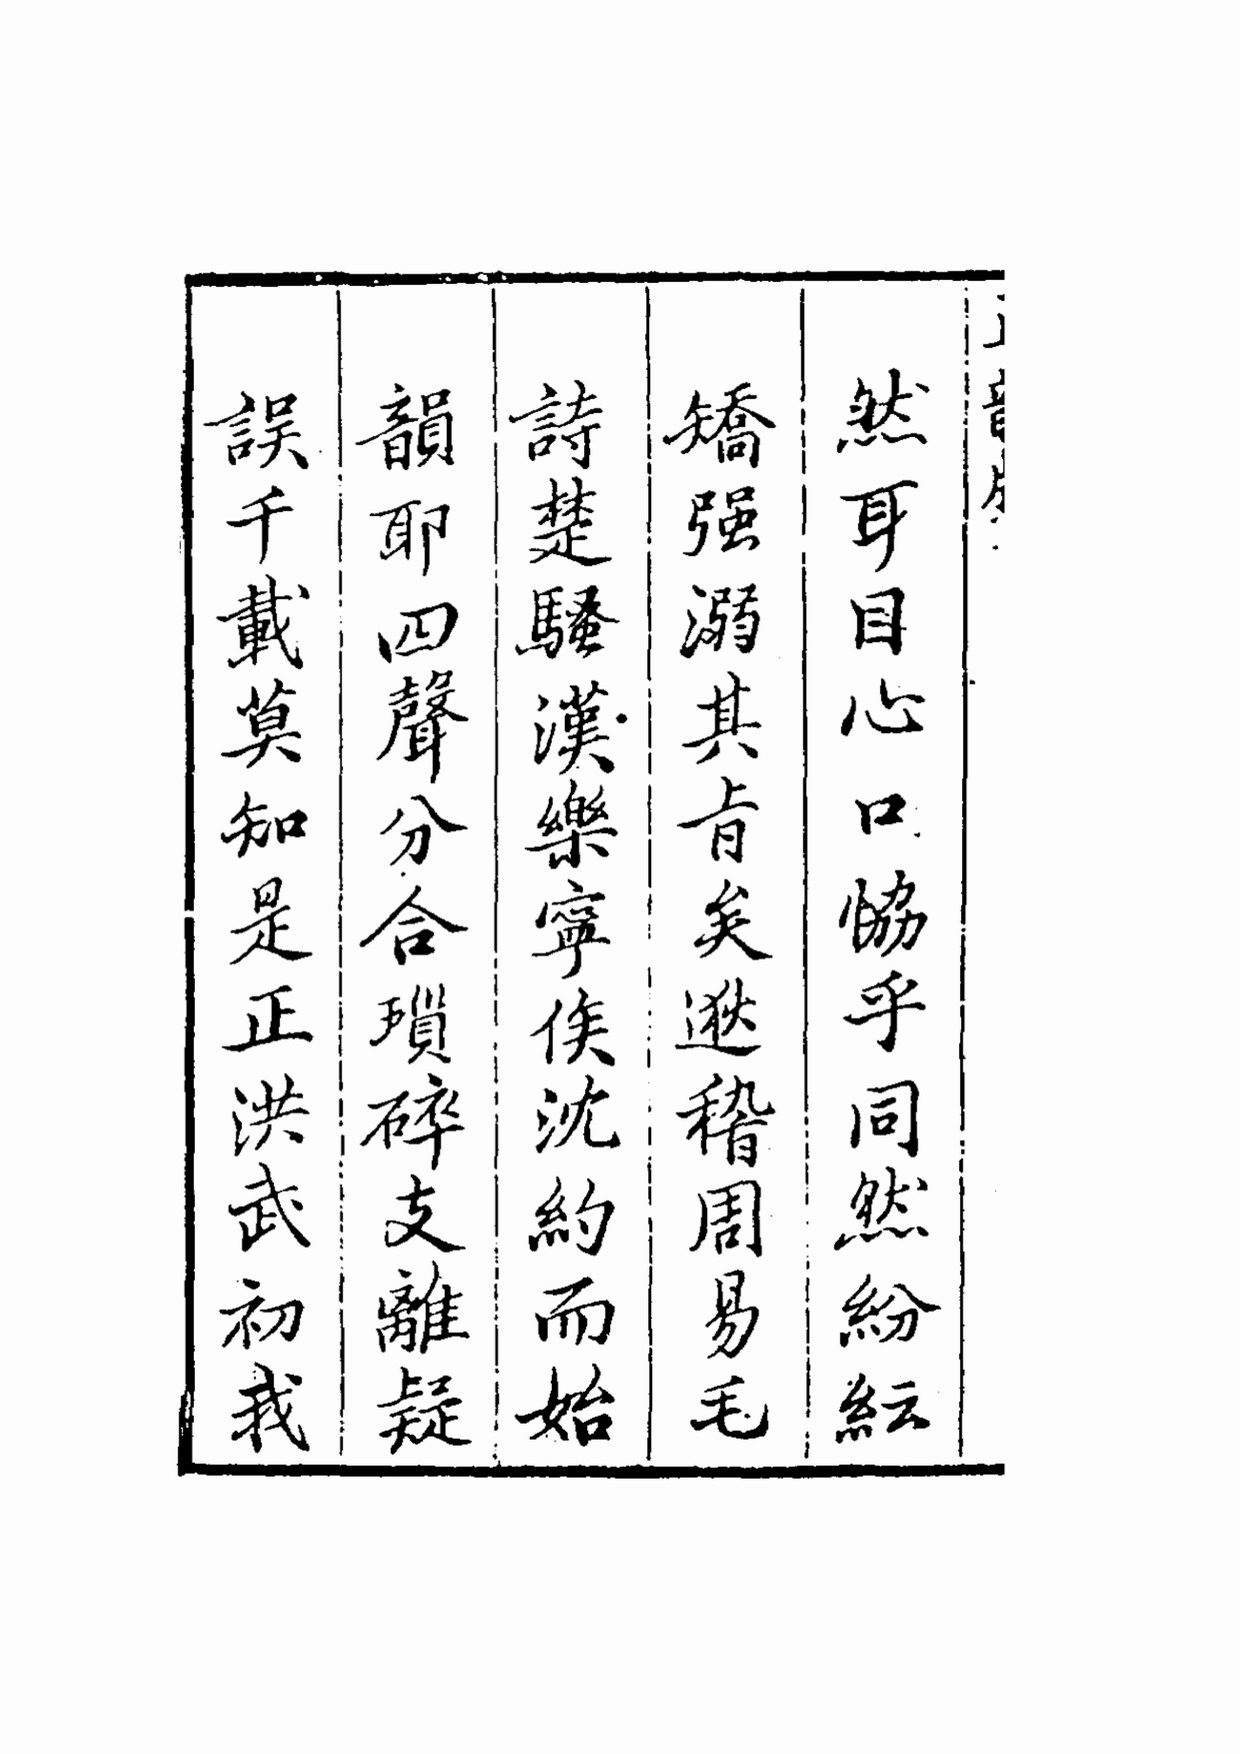 然耳目心口恊乎同然紛紜
矯强溺其旨矣逖稽周易毛
詩楚騷漢樂寧俟沈約而始
韻耶四聲分合瑣碎支離疑
誤千載莫知是正洪武初我